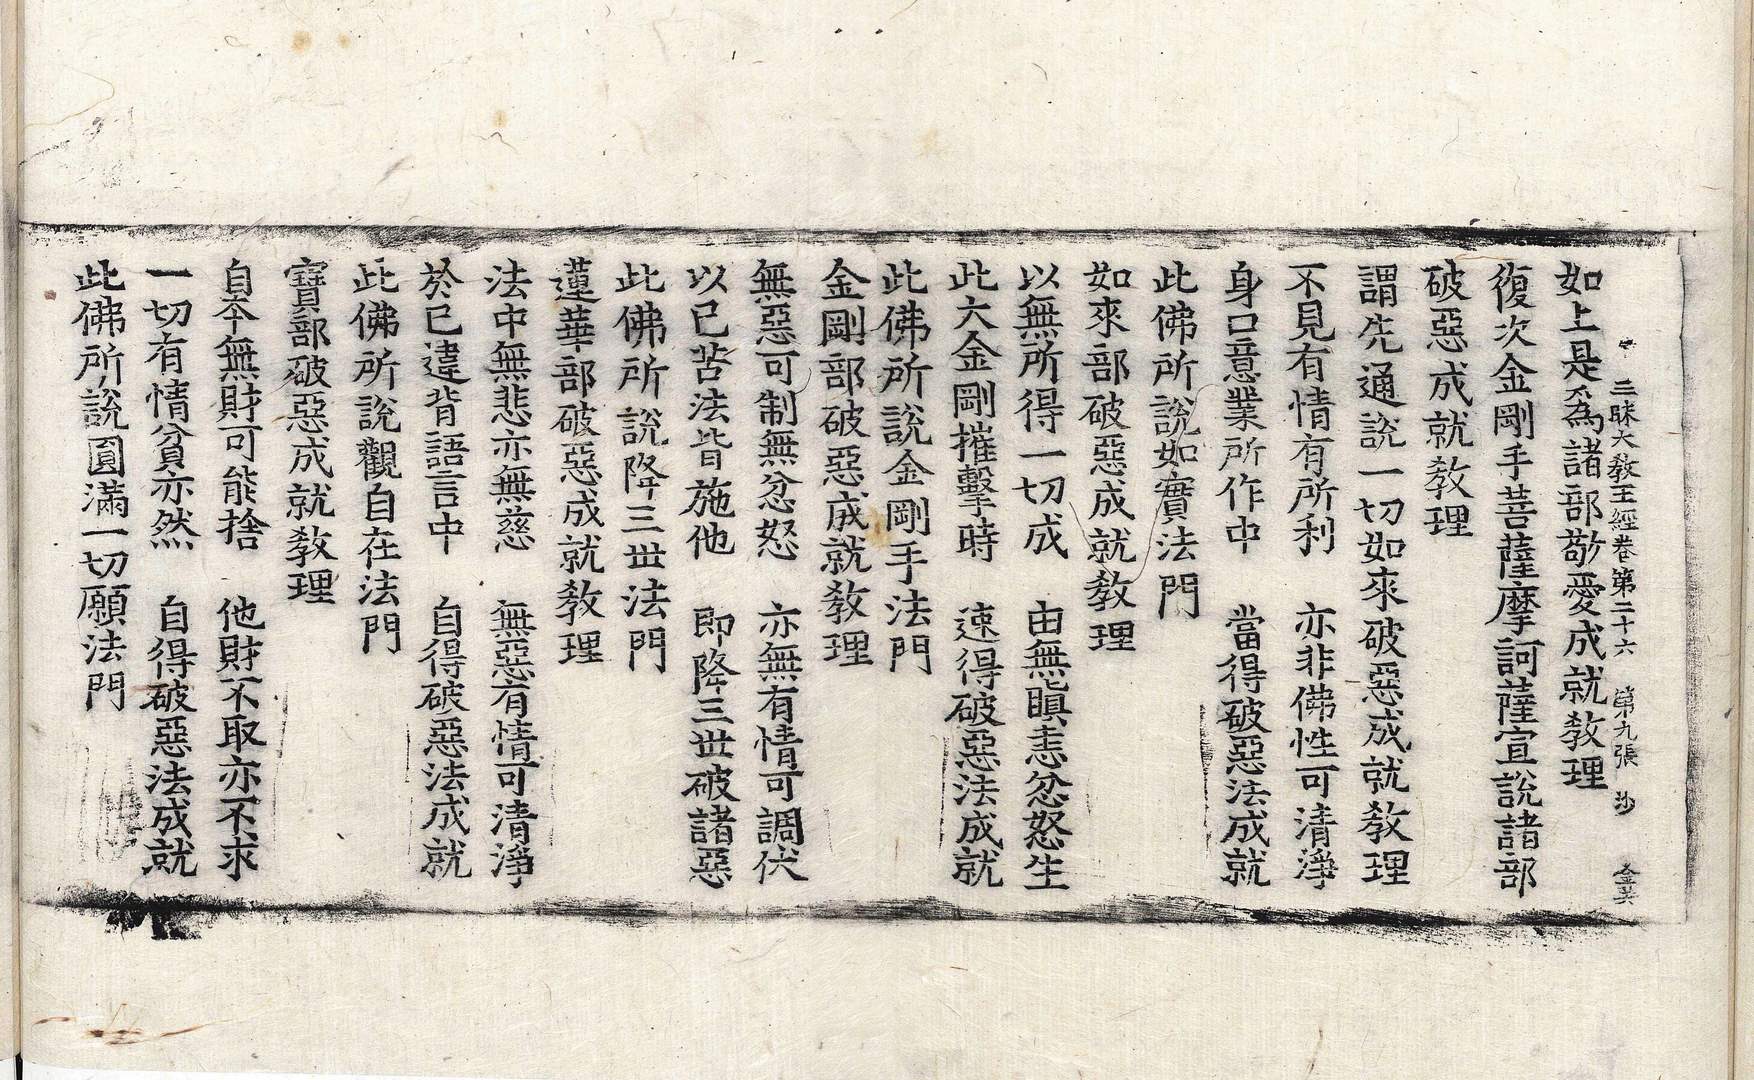 三昧大教王經卷第二十六　第九張　沙
如上是為諸部敬愛成就教理
復次金剛手菩薩摩訶薩宣說諸部
破惡成就教理
謂先通說一切如來破惡成就教理
不見有情有所利　亦非佛性可清淨
身口意業所作中　當得破惡法成就
此佛所說如實法門
如來部破惡成就教理
以無所得一切成　由無瞋恚忿怒生
此大金剛摧擊時　速得破惡法成就
此佛所說金剛手法門
金剛部破惡成就教理
無惡可制無忿怒　亦無有情可調伏
以已苦法皆施他　即降三世破諸惡
此佛所說降三世法門
蓮華部破惡成就教理
法中無悲亦無慈　無惡有情可清淨
於已違背語言中　自得破惡法成就
此佛所說觀自在法門
寶部破惡成就教理
自本無財可能捨　他財不取亦不求
一切有情貧亦然　自得破惡法成就
此佛所說圓滿一切願法門